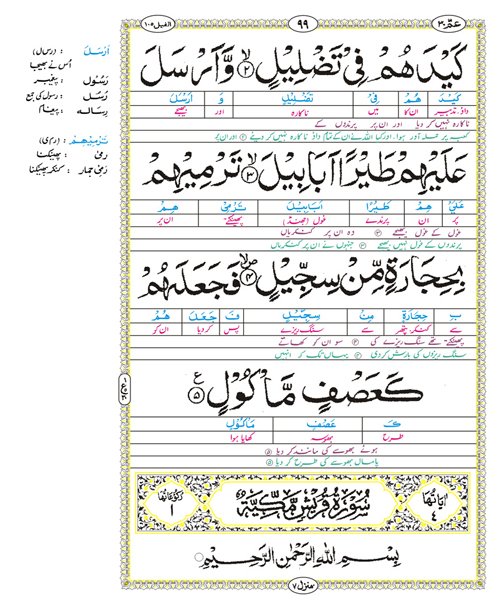 عم ٣٠
٩٩
الفيل ١٠٥
كَيْدَهُمْ فِيْ تَضْلِيْلٍ ۙ﴿۲﴾ وَّاَرْسَلَ
كَيْدَ هُمْ فِيْ تَضْلِيْلٍ وَ اَرْسَلَ
داؤ۔تدبیر ان کا میں ناکارہ اور بھیجے
ناکارہ نہیں کر دیا اور ان پر پرندوں کے
عَلَيْهِمْ طَيْرًا اَبَابِيْلَ ۙ﴿۳﴾ تَرْمِيْهِمْ
عَلَيْ هِمْ طَيْرًا اَبَابِيْلَ تَرْمِيْ هِمْ
پر ان پرندے غول (جھنڈ) پھینکتے ان پر
غول کے غول بھیجے ③ وہ ان پر کنکریاں
پرندوں کے غول نہیں بھیجے ③ جنہوں نے ان پر کنکریاں
بِحِجَارَةٍ مِّنْ سِجِّيْلٍ ۙ﴿۴﴾ فَجَعَلَهُمْ
بِ حِجَارَةٍ مِنْ سِجِّيْلٍ فَ جَعَلَ هُمْ
سے کنکر۔پتھر سے سنگ ریزے پس کر دیا ان کو
پھینکتے تھے سنگ ریزے کی ④ سو ان کو کھائے
سنگ ریزوں کی بارش کر دی ④ یہاں تک کہ انہیں
كَعَصْفٍ مَّاْكُوْلٍ ﴿۵﴾ ع
كَ عَصْفٍ مَاْكُوْلٍ
طرح بھوسہ کھایا ہوا
ہوئے بھوسے کی مانند کر دیا ⑤
پامال بھوسے کی طرح کر دیا ⑤
اٰيَاتُهَا ٤
سُوْرَةُ قُرَيْشٍ مَّكِّيَّةٌ
رُكُوْعَاتُهَا ١
بِسْمِ اللّٰهِ الرَّحْمٰنِ الرَّحِيْمِ
منزل ٧
اَرْسَلَ : (رسال)
اُس نے بھیجا
رَسُوْل : پیغمبر
رُسُل : رسول کی جمع
رِسَالَه : پیغام
تَرْمِيْهِمْ : (رمی)
رَمٰی : پھینکنا
رَمْیِ جمار : کنکر پھینکنا